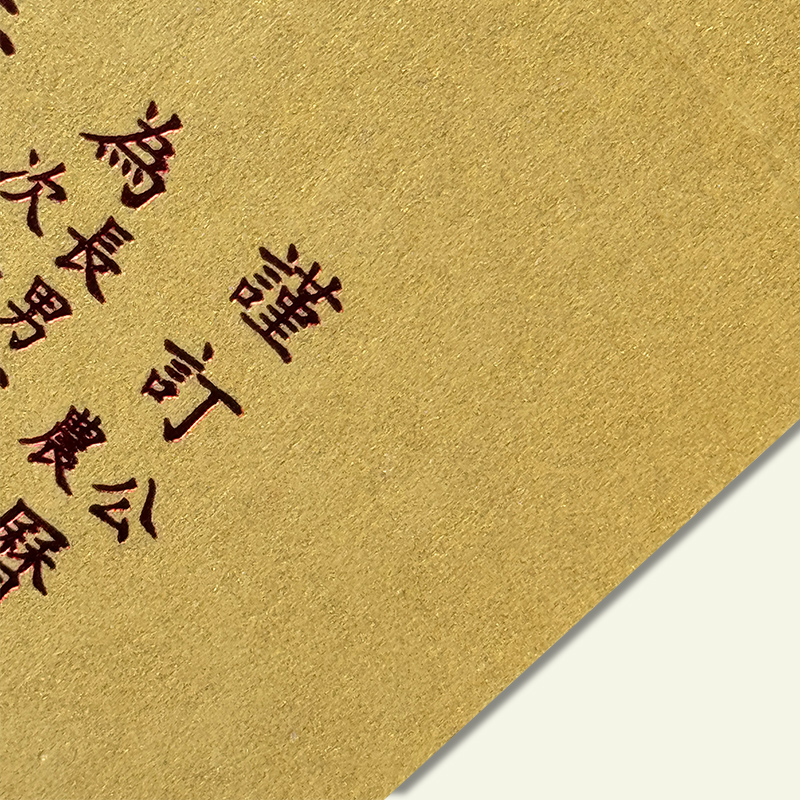 謹訂
公
農
曆
為
長男
次